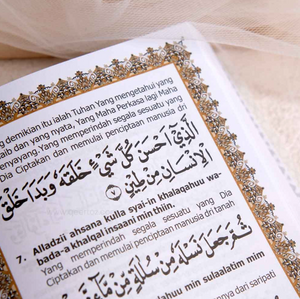 g demikian itu ialah Tuhan Yang mengetahui yang
aib dan yang nyata, Yang Maha Perkasa lagi Maha
enyayang. Yang memperindah segala sesuatu yang
Dia Ciptakan dan memulai penciptaan manusia dri
الَّذِيْٓ اَحْسَنَ كُلَّ شَيْءٍ خَلَقَهٗ وَبَدَاَ خَلْقَ
الْاِنْسَانِ مِنْ طِيْنٍ ۝٧
7. Alladzii ahsana kulla syai-in khalaqahuu wa-
bada-a khalqal insaani min thiin.
Yang memperindah segala sesuatu yang Dia
Ciptakan dan memulai penciptaan manusia dri tanah
ثُمَّ جَعَلَ نَسْلَهٗ مِنْ سُلٰلَةٍ مِّنْ مَّاۤءٍ
huu min sulaalatim mim
dari saripati